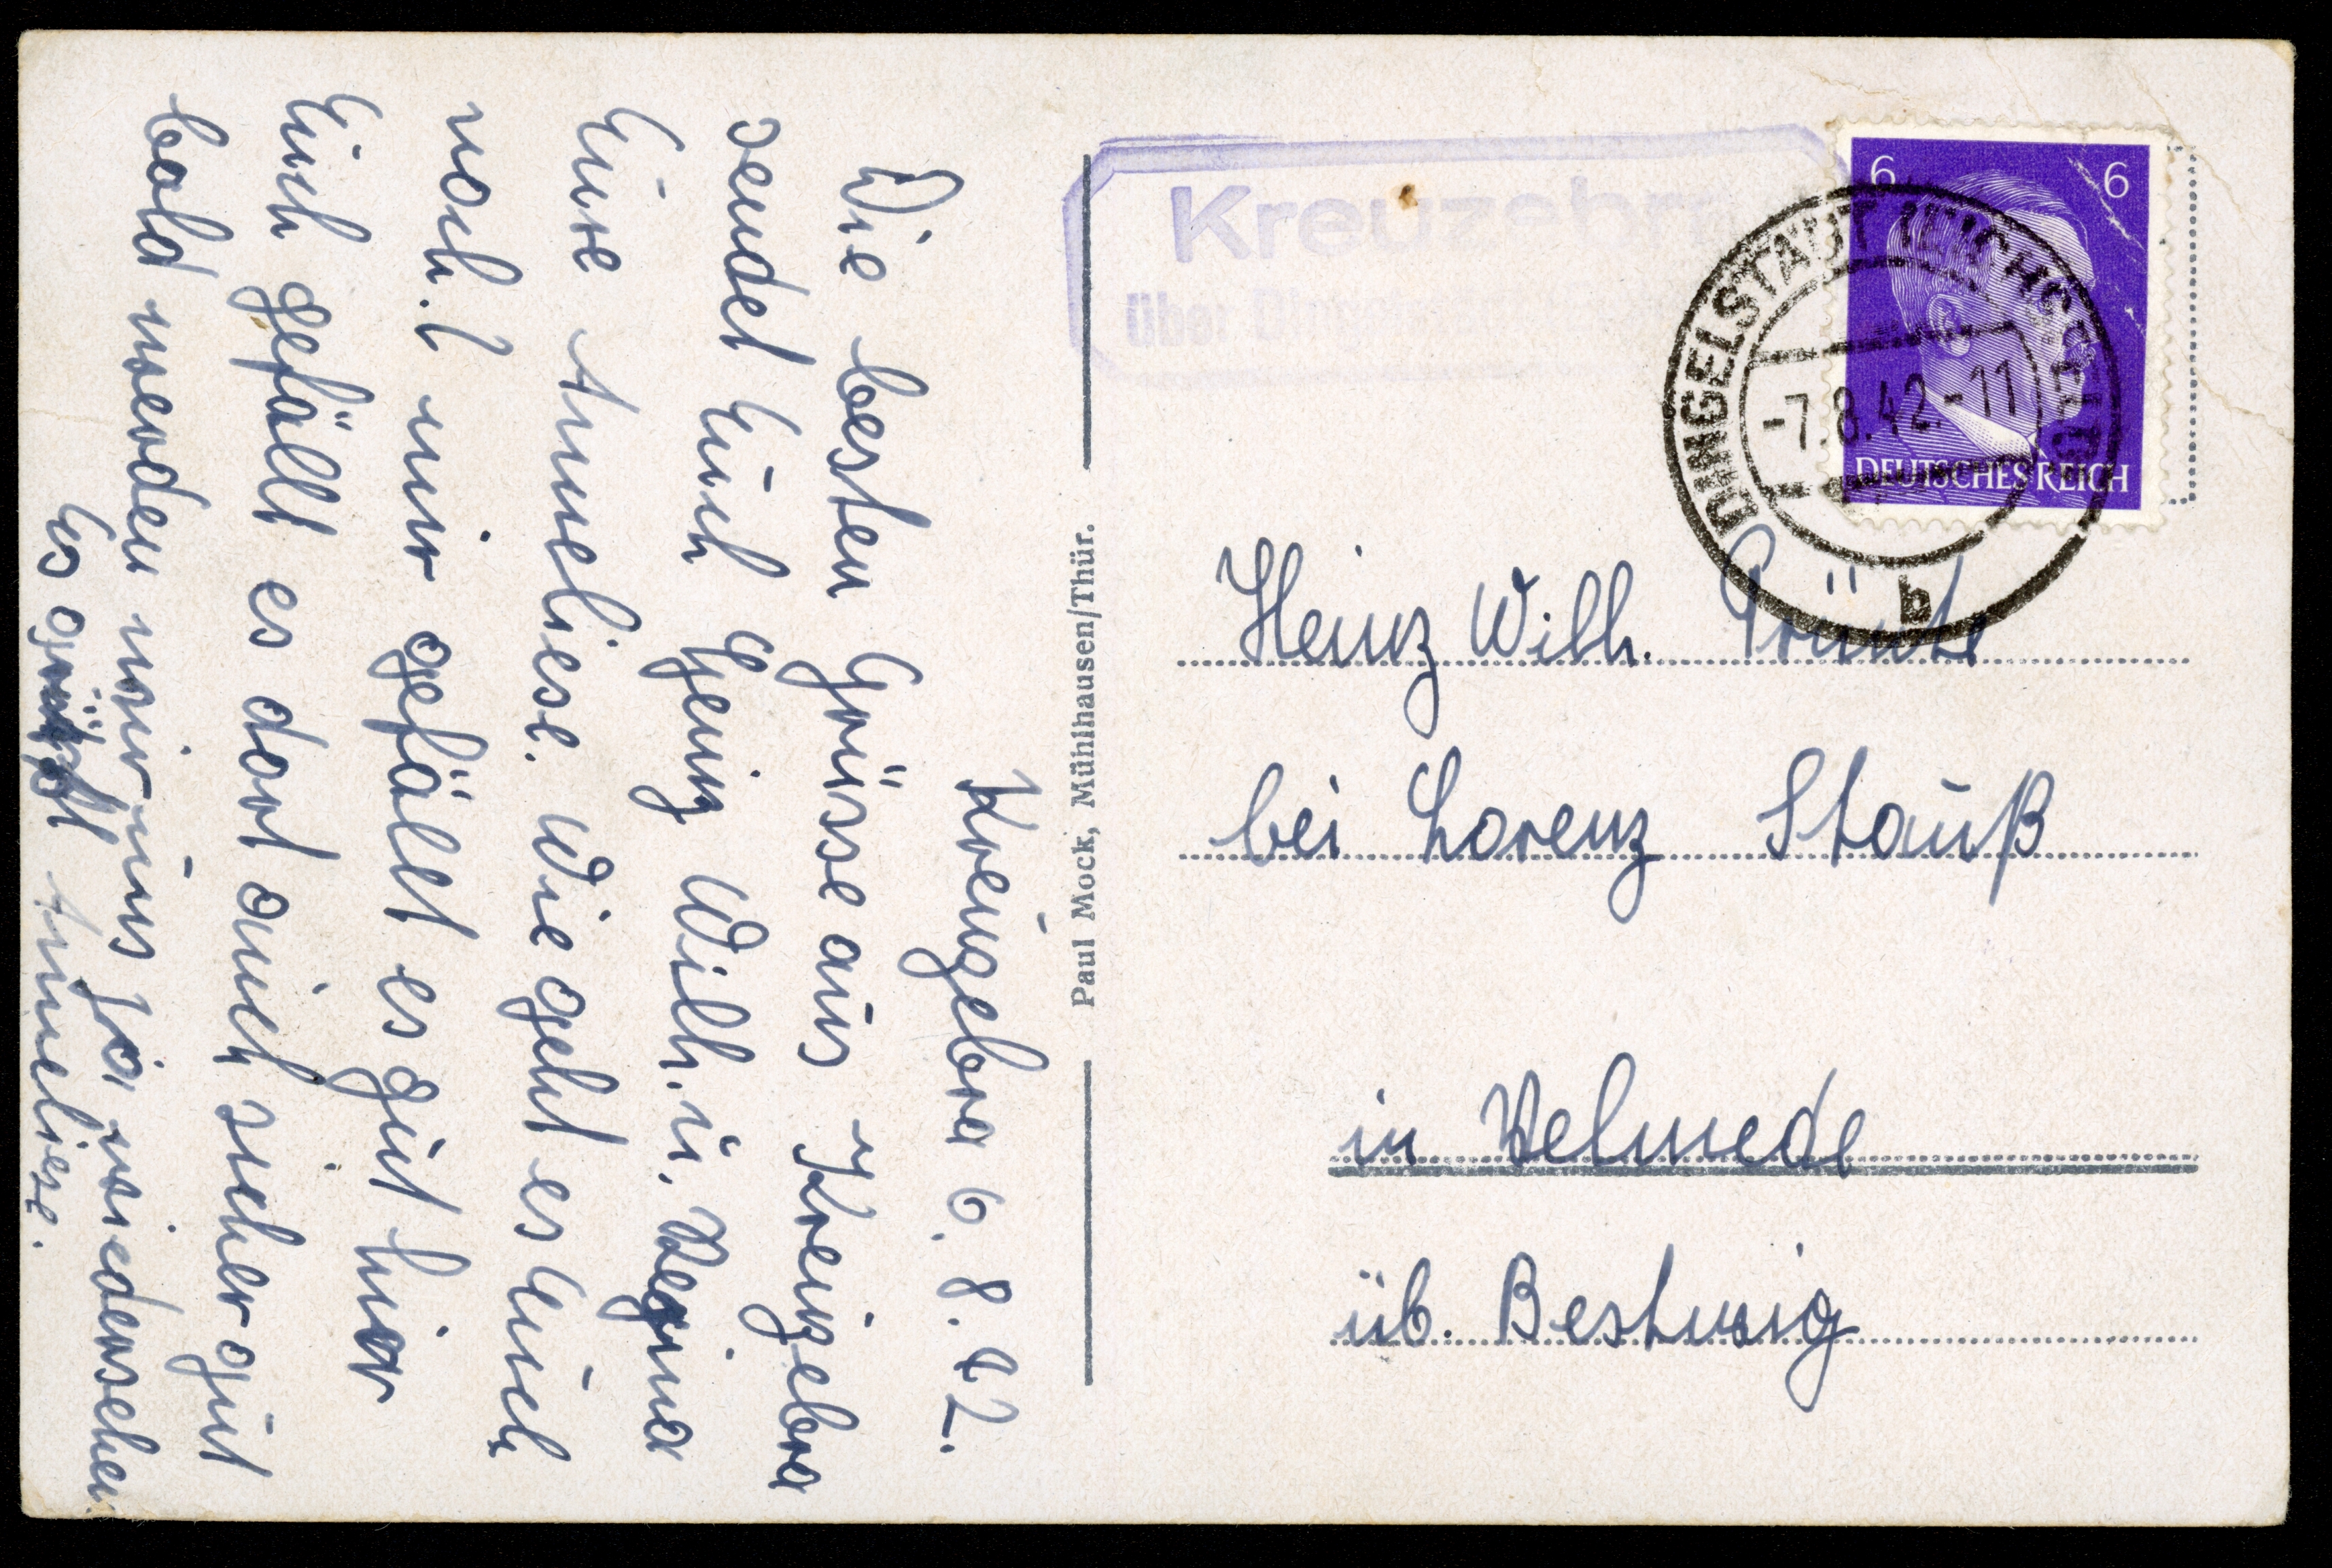 Kreuzebra 6. 8. 42.
Die besten Grüsse aus Kreuzebra
sendet Euch Heinz Wilh. u. Regina
Eure Anneliese. Wie geht es Euch
noch? mir gefällt es gut hier
Euch gefällt es dort auch sicher gut
bald werden wir uns ja wiedersehen
Es grüßt Anneliese.
Paul Mock, Mühlhausen/Thür.
Kreuzebra
über Ding
6 6
DEUTSCHES REICH
DINGELSTÄDT (EICHSFELD)
-7.8.42.-11
b
Heinz Wilh.
bei Lorenz Stauß
in Velmede
üb. Bestwig